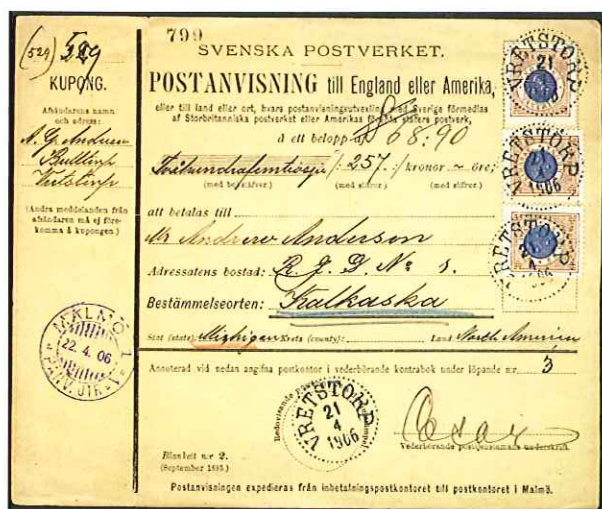 799
(529) 529
KUPONG.
Afsändarens namn
och adress:
(Andra meddelanden från
afsändaren må ej före-
komma å kupongen.)
SVENSKA POSTVERKET.
POSTANVISNING till England eller Amerika,
eller till land eller ort, hvars postanvisningsutvexling med Sverige förmedlas
af Storbritanniska postverket eller Amerikas förenta staters postverk,
å ett belopp af 68:90
257 kronor öre,
(med bokstäfver.) (med siffror.) (med siffror.)
att betalas till
Mr Andrew Anderson
Adressatens bostad: R. F. D. No 1.
Bestämmelseorten: Kalkaska
Stat (state): Michigan Krets (county): Land North America
Annoterad vid nedan angifna postkontor i vederbörande kontrabok under löpande nr 3
Vederbörande postjänstemans underskrift.
Blankett n:r 2.
(September 1893.)
Postanvisningen expedieras från inbetalningspostkontoret till postkontoret i Malmö.
VRETSTORP
21
4
1906
VRETSTORP
21
4
1906
VRETSTORP
21
4
1906
VRETSTORP
21
4
1906
22.4.06